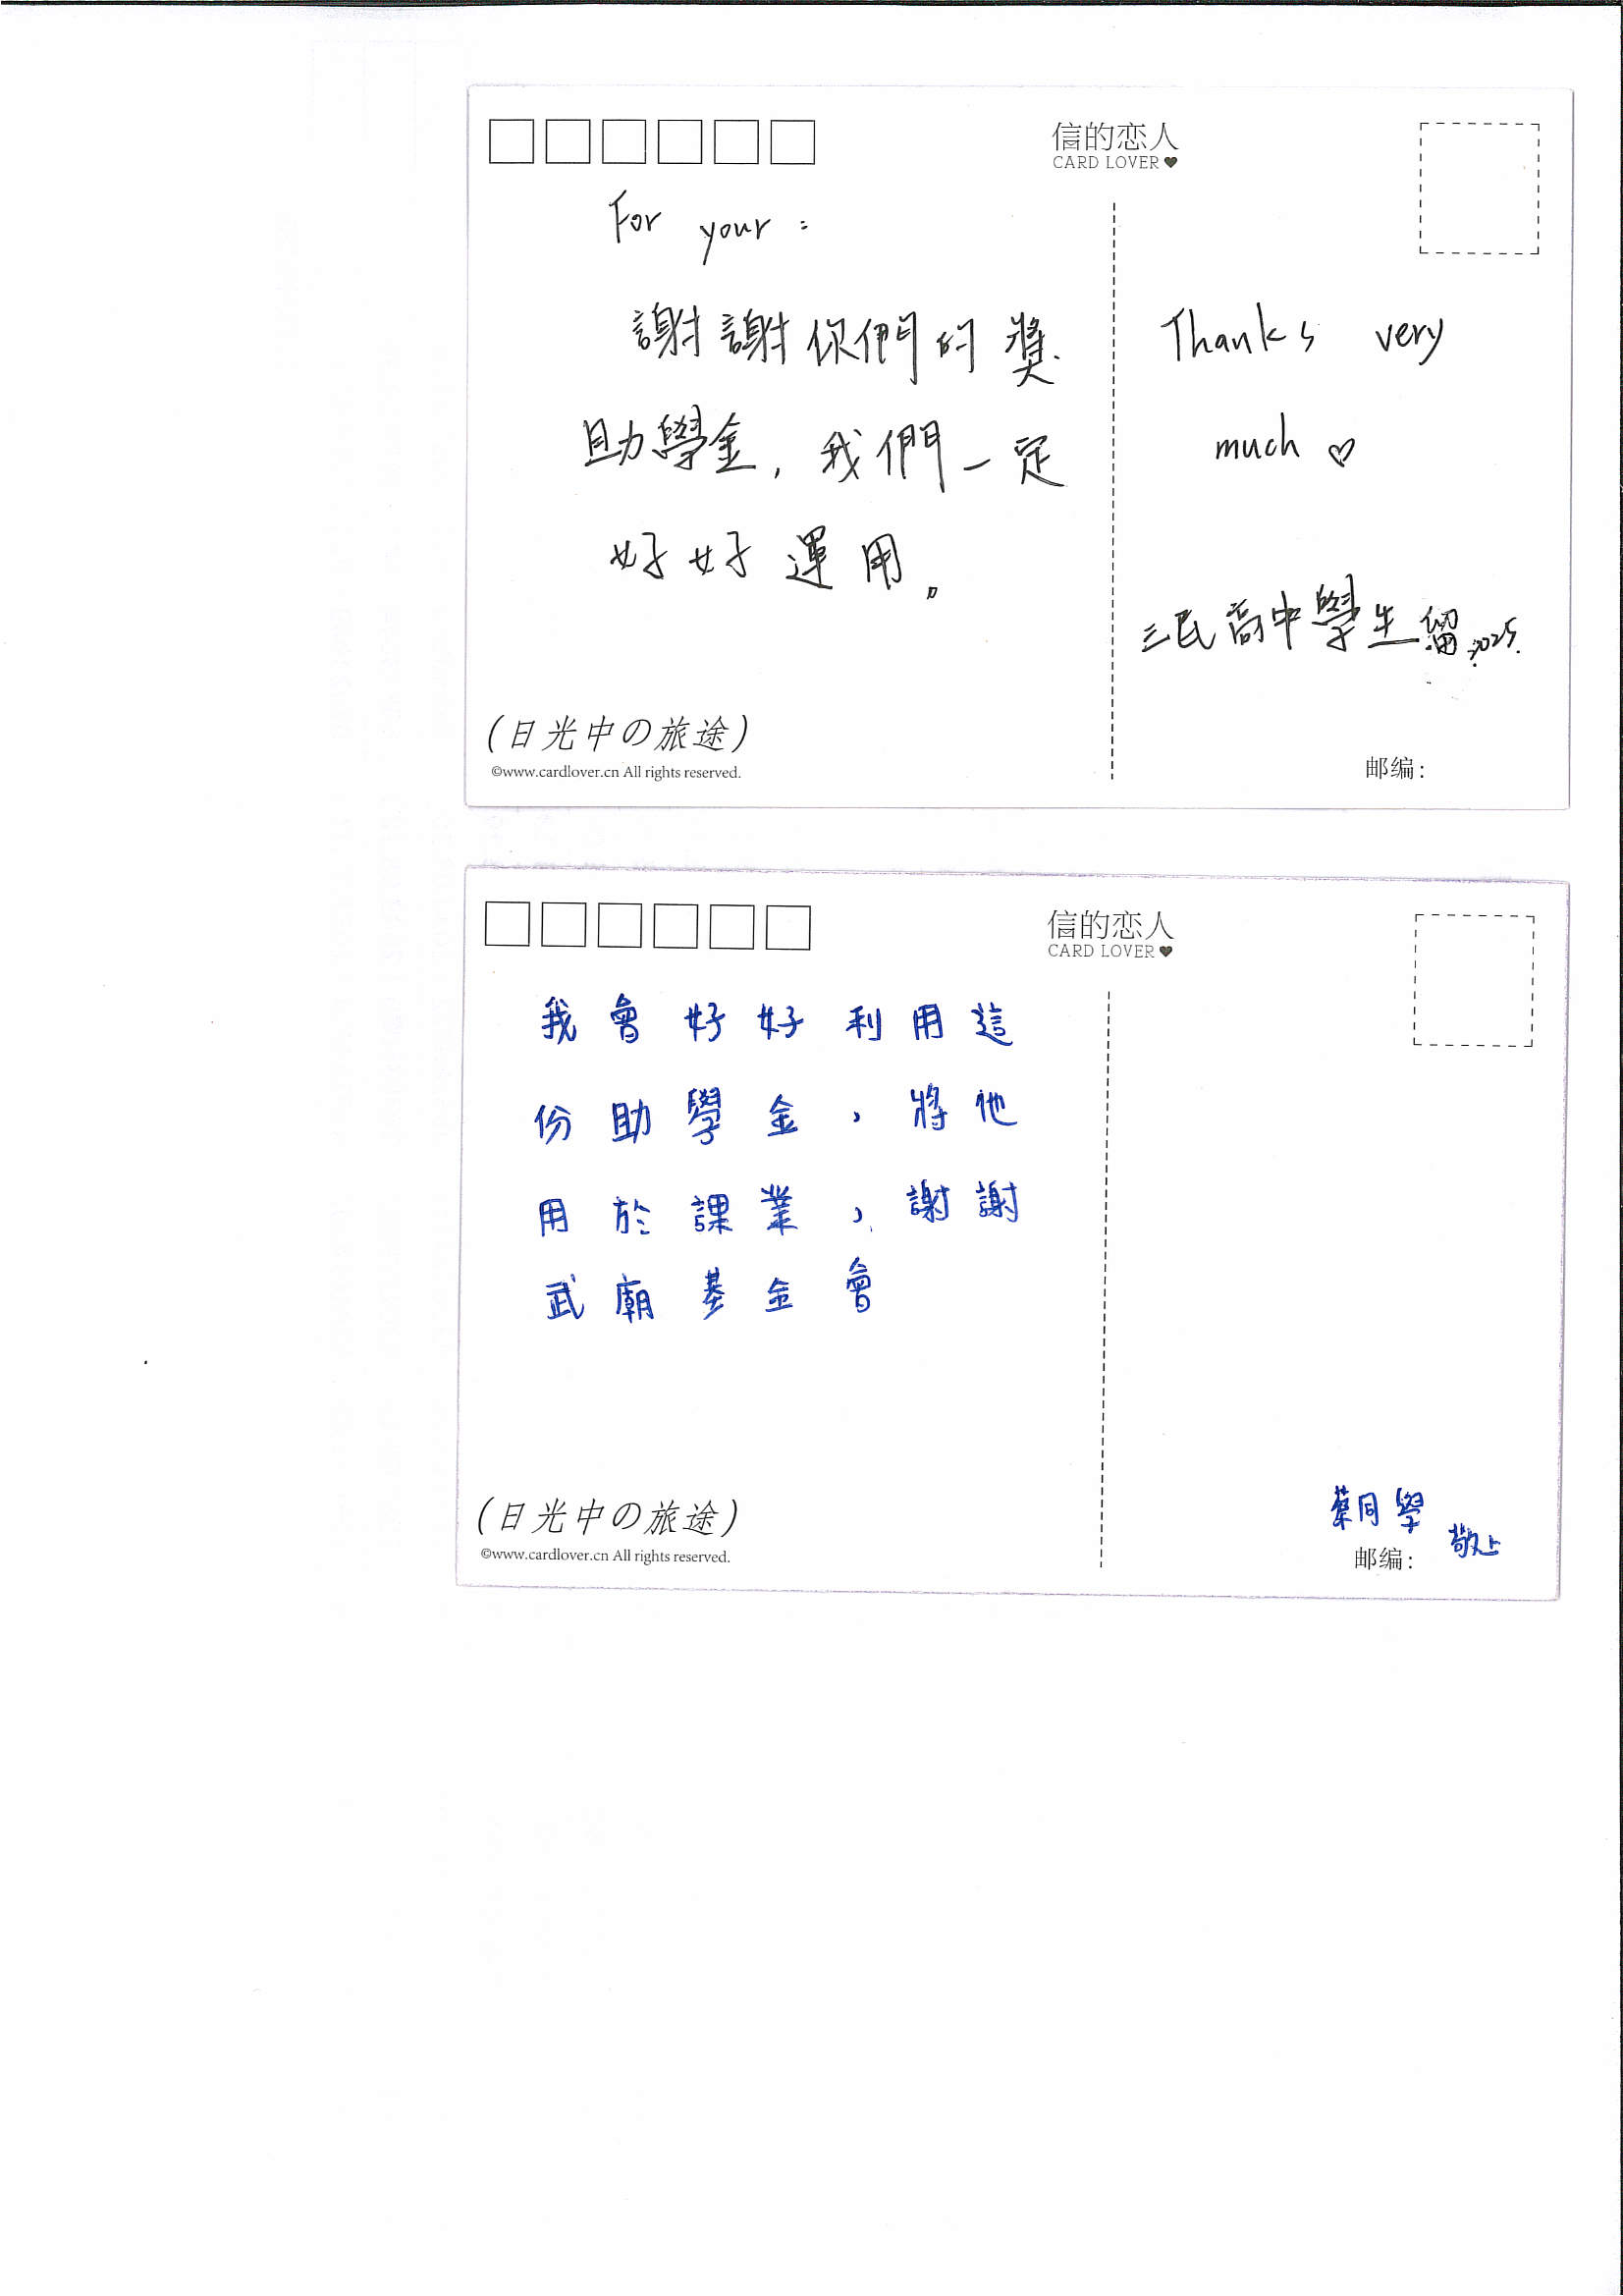 信的恋人
CARD LOVER♥
For your :
謝謝你們的獎
助學金，我們一定
好好運用。
Thanks very
much ♡
三民高中學生留 2025.
(日光中の旅途)
©www.cardlover.cn All rights reserved.
邮编：
信的恋人
CARD LOVER♥
我會好好利用這
份助學金，將他
用於課業，謝謝
武廟基金會
蔡同學
敬上
(日光中の旅途)
©www.cardlover.cn All rights reserved.
邮编：